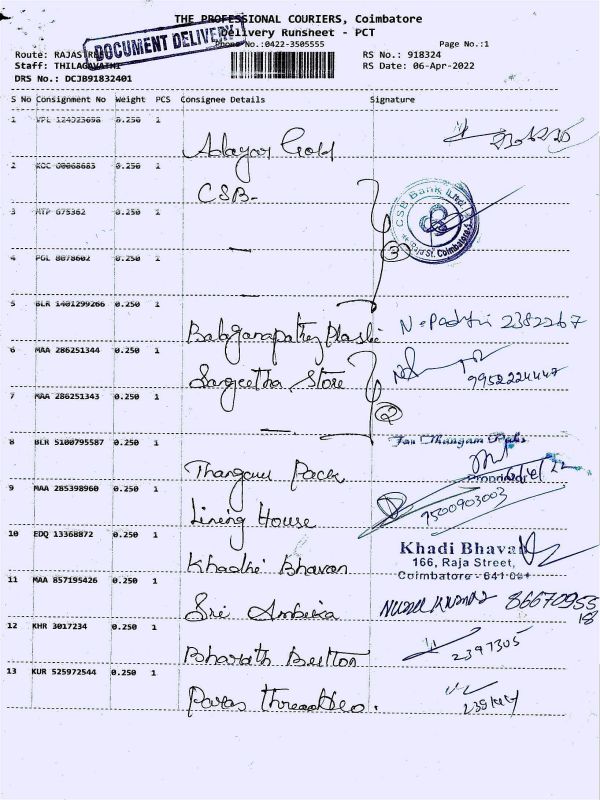 THE PROFESSIONAL COURIERS, Coimbatore
Delivery Runsheet - PCT
DOCUMENT DELIVERY
Phone No.:0422-3505555
Page No.:1
Route: RAJASTREET
RS No.: 918324
Staff: THILAGAVATHI
RS Date: 06-Apr-2022
DRS No.: DCJB91832401
S No Consignment No Weight PCS Consignee Details Signature
1 VPL 124323698 0.250 1
Adayar Gold
2 KOC 00068683 0.250 1
CSB-
CSB Bank Ltd
Raja St. Coimbatore
3 MTP 675362 0.250 1
—
3
4 PGL 8078602 0.250 1
—
5 BLR 1401299266 0.250 1
Balaganapathy Plastic 2382267
6 MAA 286251344 0.250 1
Sangeetha Store 9952224447
7 MAA 286251343 0.250 1
—
2
8 BLR 5100795587 0.250 1
For Thangam
Thangam Pack
Proprietor
9 MAA 285398960 0.250 1
Lining House 9500903003
10 EDQ 13368872 0.250 1
Khadhi Bhavan
Khadi Bhavan
166, Raja Street,
Coimbatore - 641 001
11 MAA 857195426 0.250 1
Sri Ambica 8667095518
12 KHR 3017234 0.250 1
Bharath Button 2397305
13 KUR 525972544 0.250 1
Paras